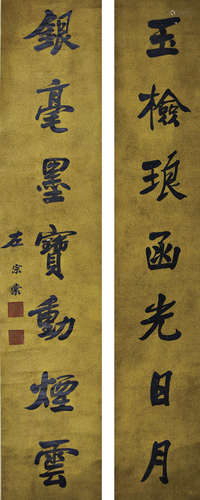 玉檢琅函光日月
銀毫墨寶動煙雲
左宗棠